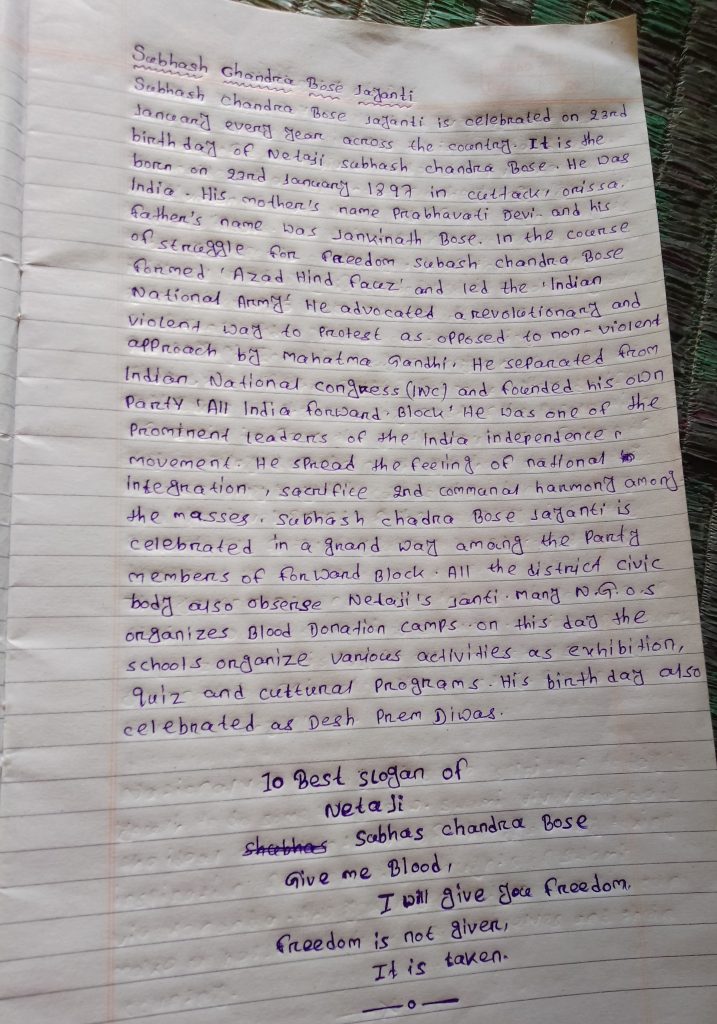 Subhash Chandra Bose Jayanti
Subhash Chandra Bose Jayanti is celebrated on 23rd
January every year across the country. It is the
birth day of Netaji subhash chandra Bose. He was
born on 23rd January 1897 in cuttack, orissa,
India. His mother's name Prabhavati Devi and his
father's name was Jankinath Bose. In the course
of struggle for freedom subash chandra Bose
formed 'Azad Hind Fauz' and led the 'Indian
National Army' He advocated a revolutionary and
violent way to Protest as opposed to non-violent
approach by Mahatma Gandhi. He separated from
Indian National congress (INC) and founded his own
Party 'All India forward Block' He was one of the
Prominent leaders of the India independence
movement. He spread the feeling of national
integration, sacrifice and communal harmony among
the masses. Subhash chadra Bose Jayanti is
celebrated in a grand way among the Party
members of forward Block. All the district civic
body also obsenge Netaji's Janti. Many N.G.O.s
organizes Blood Donation camps on this day the
schools organize various activities as exhibition,
quiz and cultural Programs. His birth day also
celebrated as Desh Prem Diwas.
10 Best slogan of
Netaji
Sabhas chandra Bose
Give me Blood,
I will give you freedom.
freedom is not given,
It is taken.